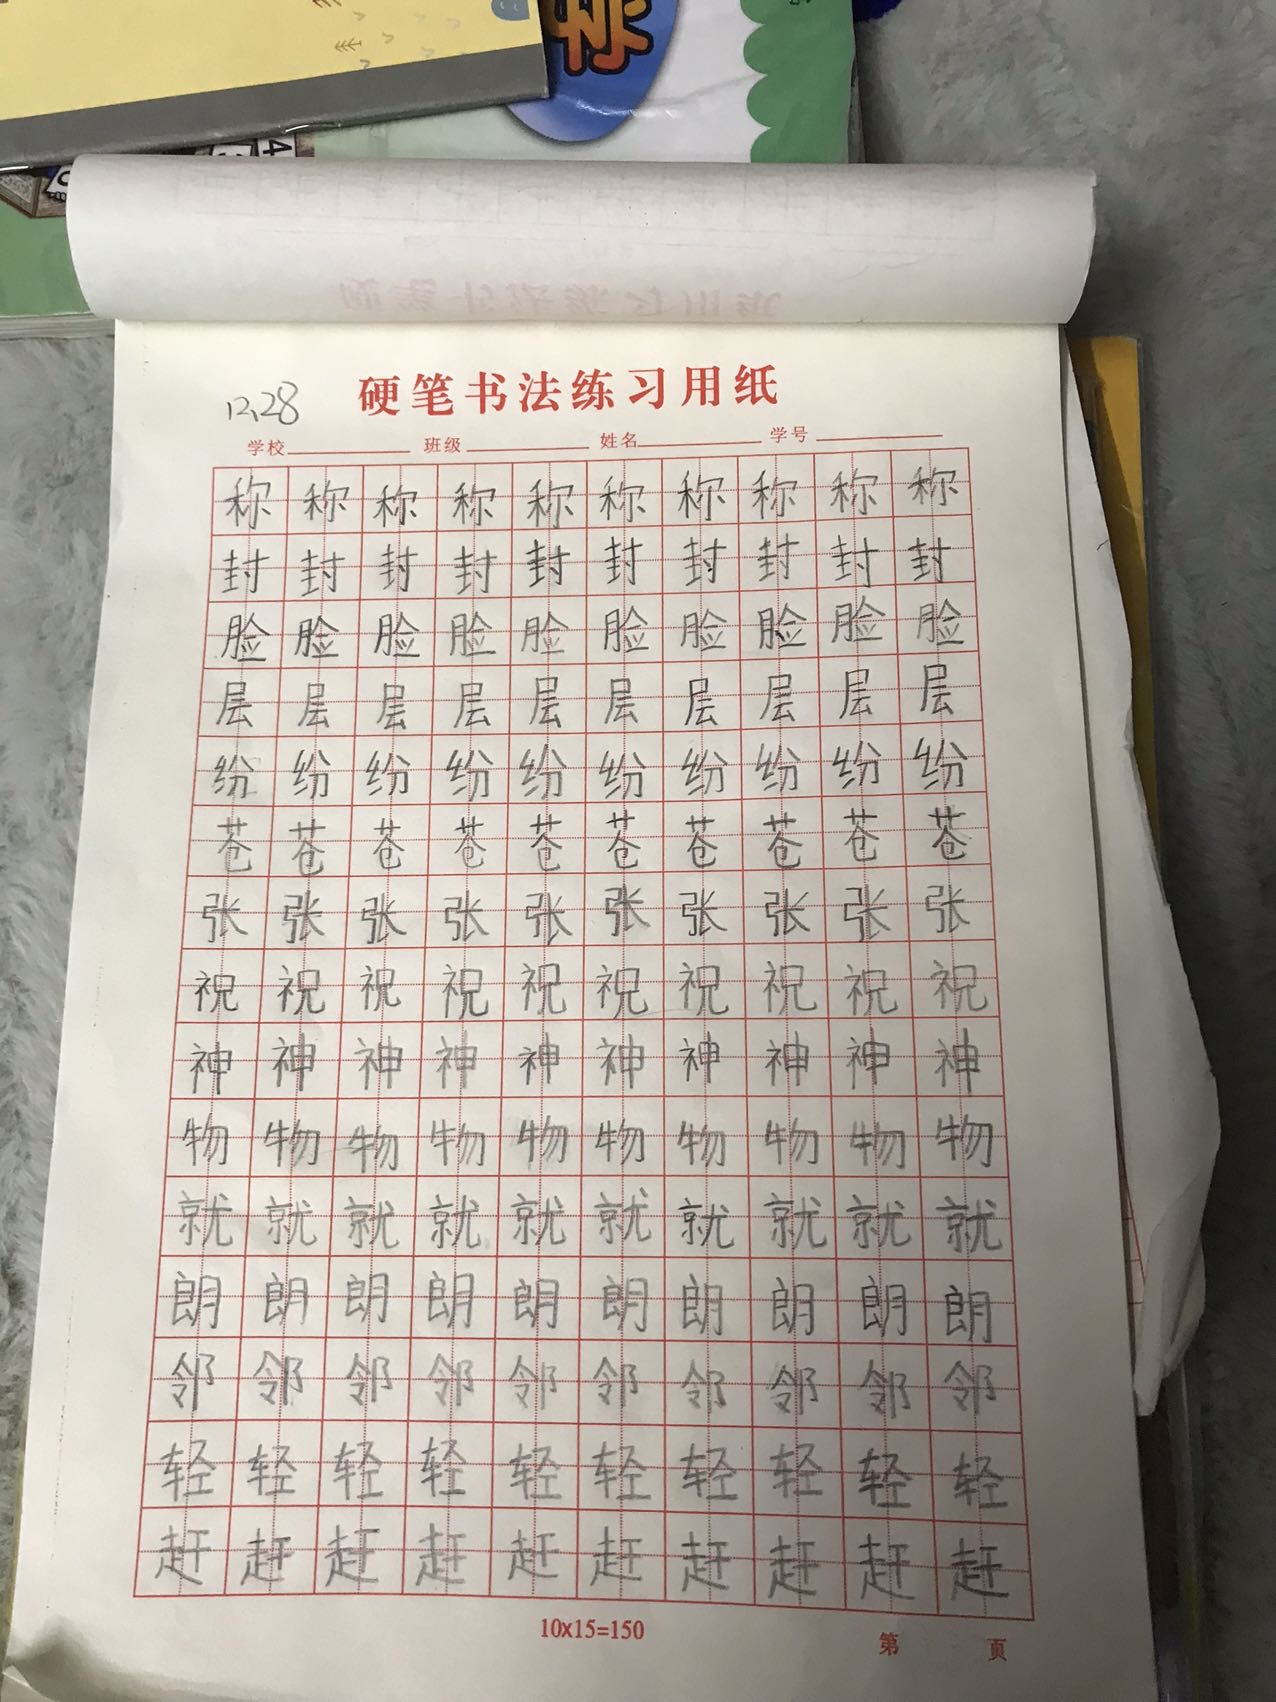 称
4
12.28
硬笔书法练习用纸
学校 班级 姓名 学号
称称称称称称称称称称
封封封封封封封封封封
脸脸脸脸脸脸脸脸脸脸
层层层层层层层层层层
纷纷纷纷纷纷纷纷纷纷
苍苍苍苍苍苍苍苍苍苍
张张张张张张张张张张
祝祝祝祝祝祝祝祝祝祝
神神神神神神神神神神
物物物物物物物物物物
就就就就就就就就就就
朗朗朗朗朗朗朗朗朗朗
邻邻邻邻邻邻邻邻邻邻
轻轻轻轻轻轻轻轻轻轻
赶赶赶赶赶赶赶赶赶赶
10x15=150
第 页